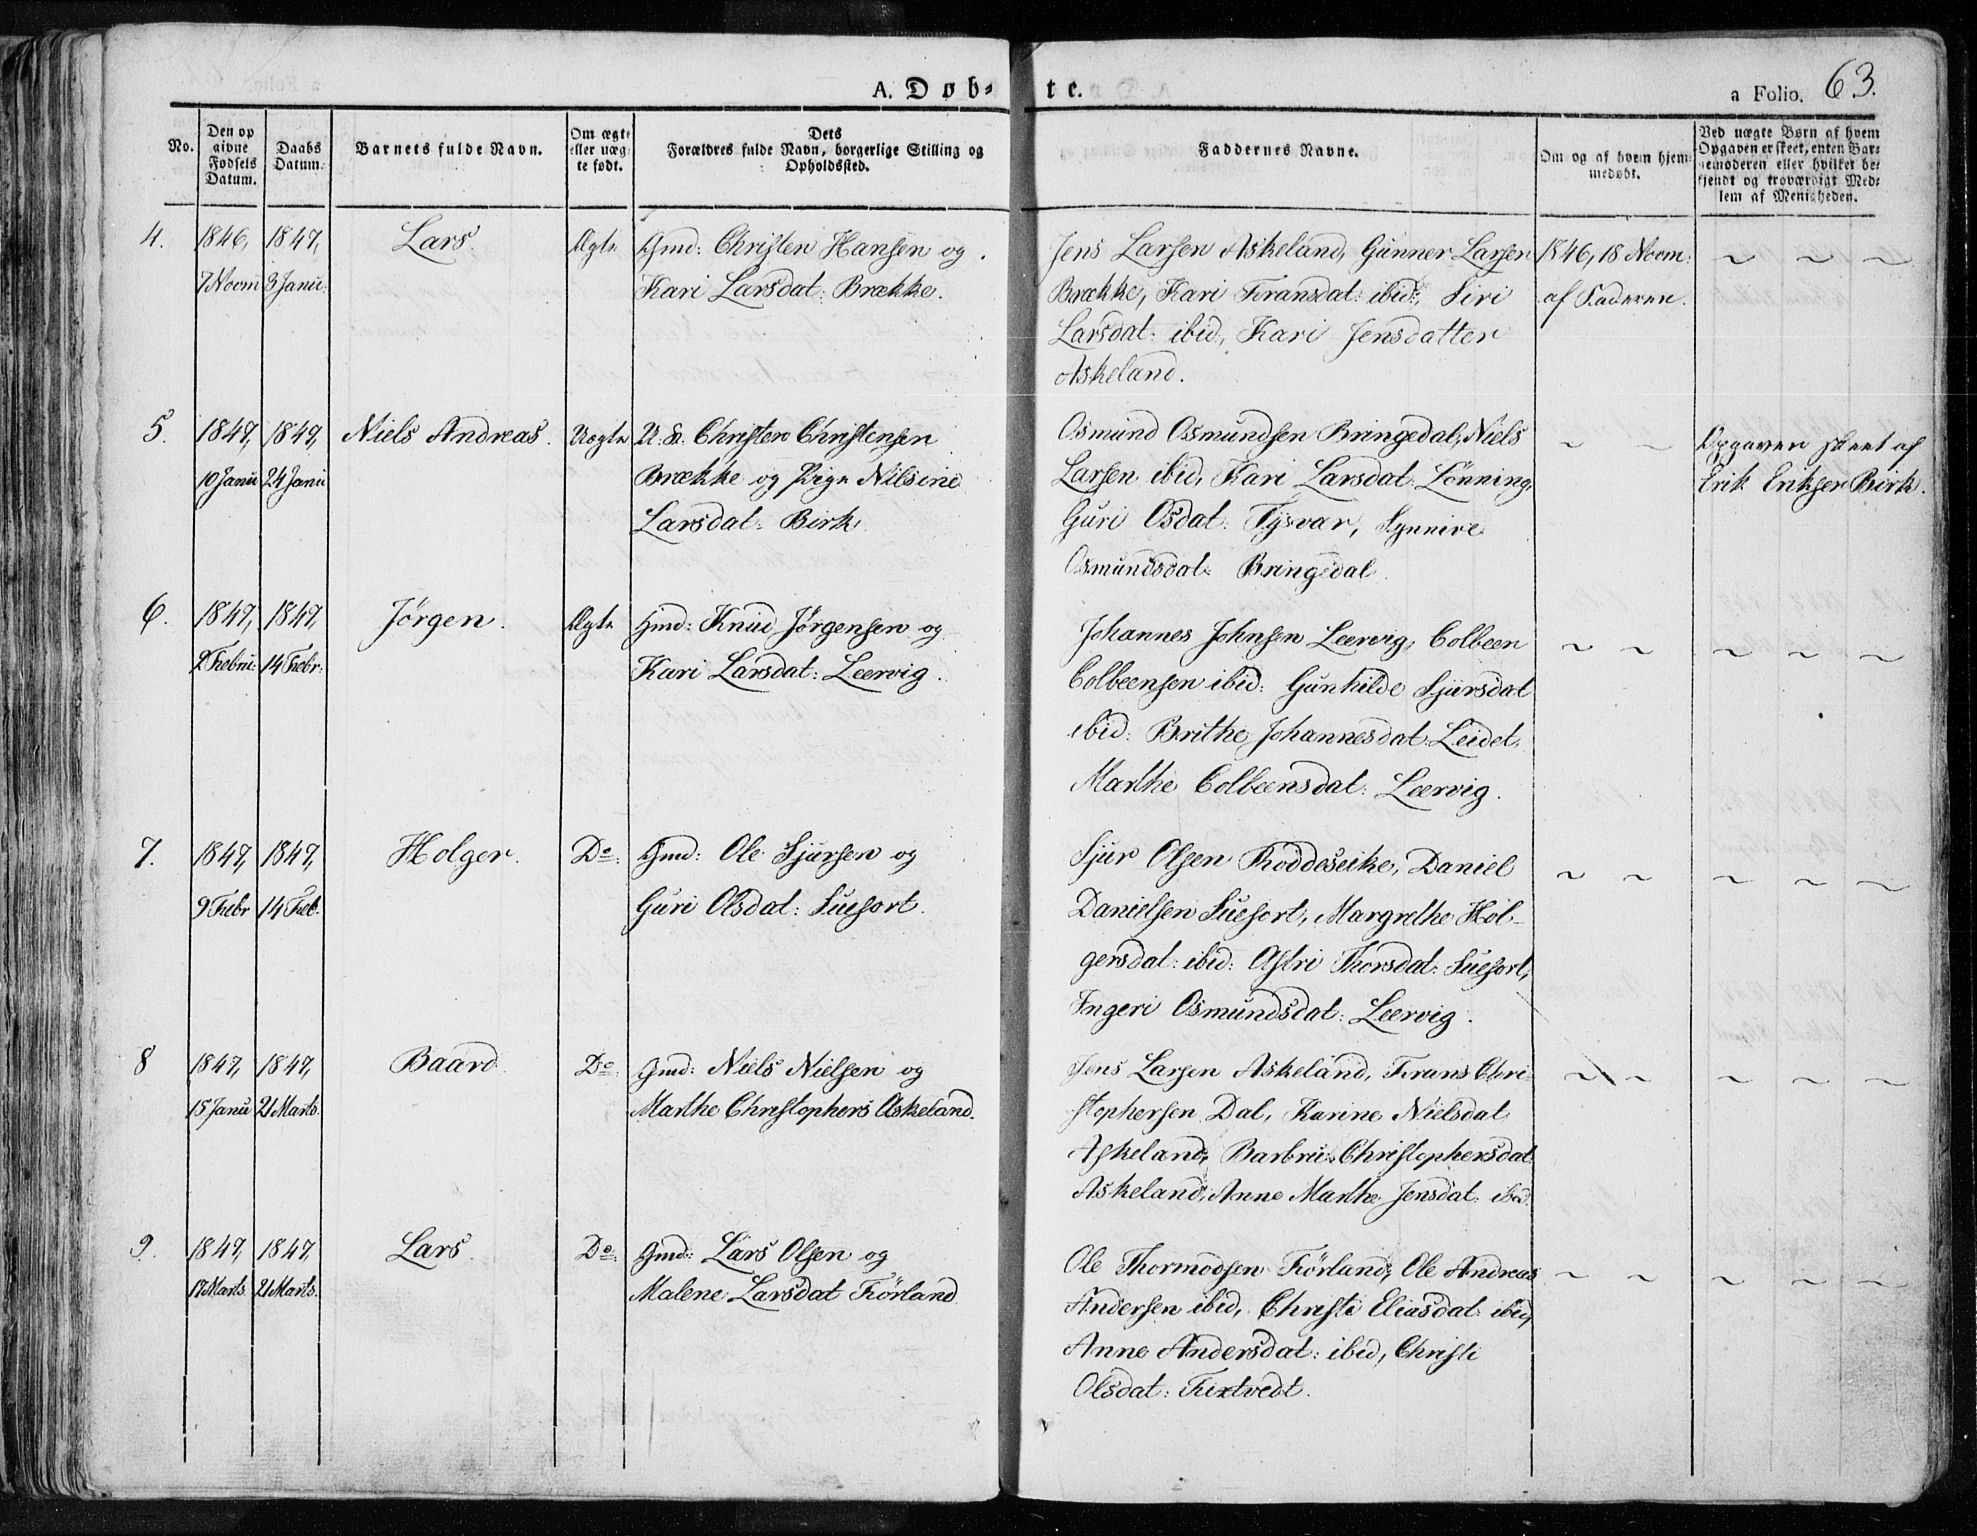 A. Døb-te.
a Folio. 63.
No.
Den op
givne
Fødsels
Datum.
Daabs
Datum.
Barnets fulde Navn.
Om ægte
eller uæg-
te født.
Dets
Forældres fulde Navn, borgerlige Stilling og
Opholdssted.
Faddernes Navne.
Om og af hvem hjem-
medøbt.
Ved uægte Børn af hvem
Opgaven er skeet, enten Bar-
nemoderen eller hvilket be-
kjendt og troværdigt Med-
lem af Menigheden.
4.
1846,
7 Novm
1847,
3 Janu:
Lars.
Ægte
Gmd: Christen Hansen og
Kari Larsdat: Brække.
Jens Larsen Askeland, Gunner Larsen
Brække, Kari Fransdat: ibid:, Siri
Larsdat: ibid:, Kari Jensdatter
Askeland.
1846, 18 Novm:
af Faderen.
~ ~ ~
5.
1847,
10 Janu
1847,
24 Janu
Niels Andreas.
Uægte
U. K: Christen Christensen
Brække og Pige Nilsine
Larsdat: Birk.
Osmund Osmundsen Bringedal, Niels
Larsen ibid, Kari Larsdat: Lønning,
Guri Osdat: Tysvær, Synnive
Osmundsdat: Bringedal.
~ ~
Opgaven skeet af
Erik Eriksen Birk.
6.
1847,
2 Febru:
1847,
14 Febr:
Jörgen.
Ægte
Gmd: Knud Jørgensen og
Kari Larsdat: Leervig.
Johannes Johnsen Leervig, Colbeen
Colbeensen ibid: Gunhilde Sjursdat
ibid: Brithe Johannesdat: Leidet,
Marthe Colbeensdat: Leervig.
~ ~ ~ ~ ~
7.
1847,
9 Febr
1847,
14 Feb.
Holger.
Do:
Gmd: Ole Sjursen og
Guri Olsdat: Suesort.
Sjur Olsen Roddeseike, Daniel
Danielsen Suesort, Margrethe Hol-
gersdat: ibid: Astri Thorsdat: Suesort,
Ingeri Osmundsdat: Leervig.
~ ~ ~ ~ ~
8
1847,
15 Janu
1847,
21 Marts.
Baard
Do:
Gmd: Niels Nielsen og
Marthe Christophers Askeland.
Jens Larsen Askeland, Frans Chri-
stophersen Dal, Karine Nielsdat
Askeland, Barbru Christophersdat
Askeland, Anne Marthe Jensdat: ibid.
~ ~ ~ ~ ~
9.
1847,
17 Marts
1847,
21 Marts.
Lars.
Do:
Gmd: Lars Olsen og
Malene Larsdat Förland
Ole Thormodsen Förland, Ole Andreas
Andersen ibid, Christi Eliasdat: ibid,
Anne Andersdat: ibid, Christi
Olsdat: Fixtvedt.
~ ~ ~ ~ ~